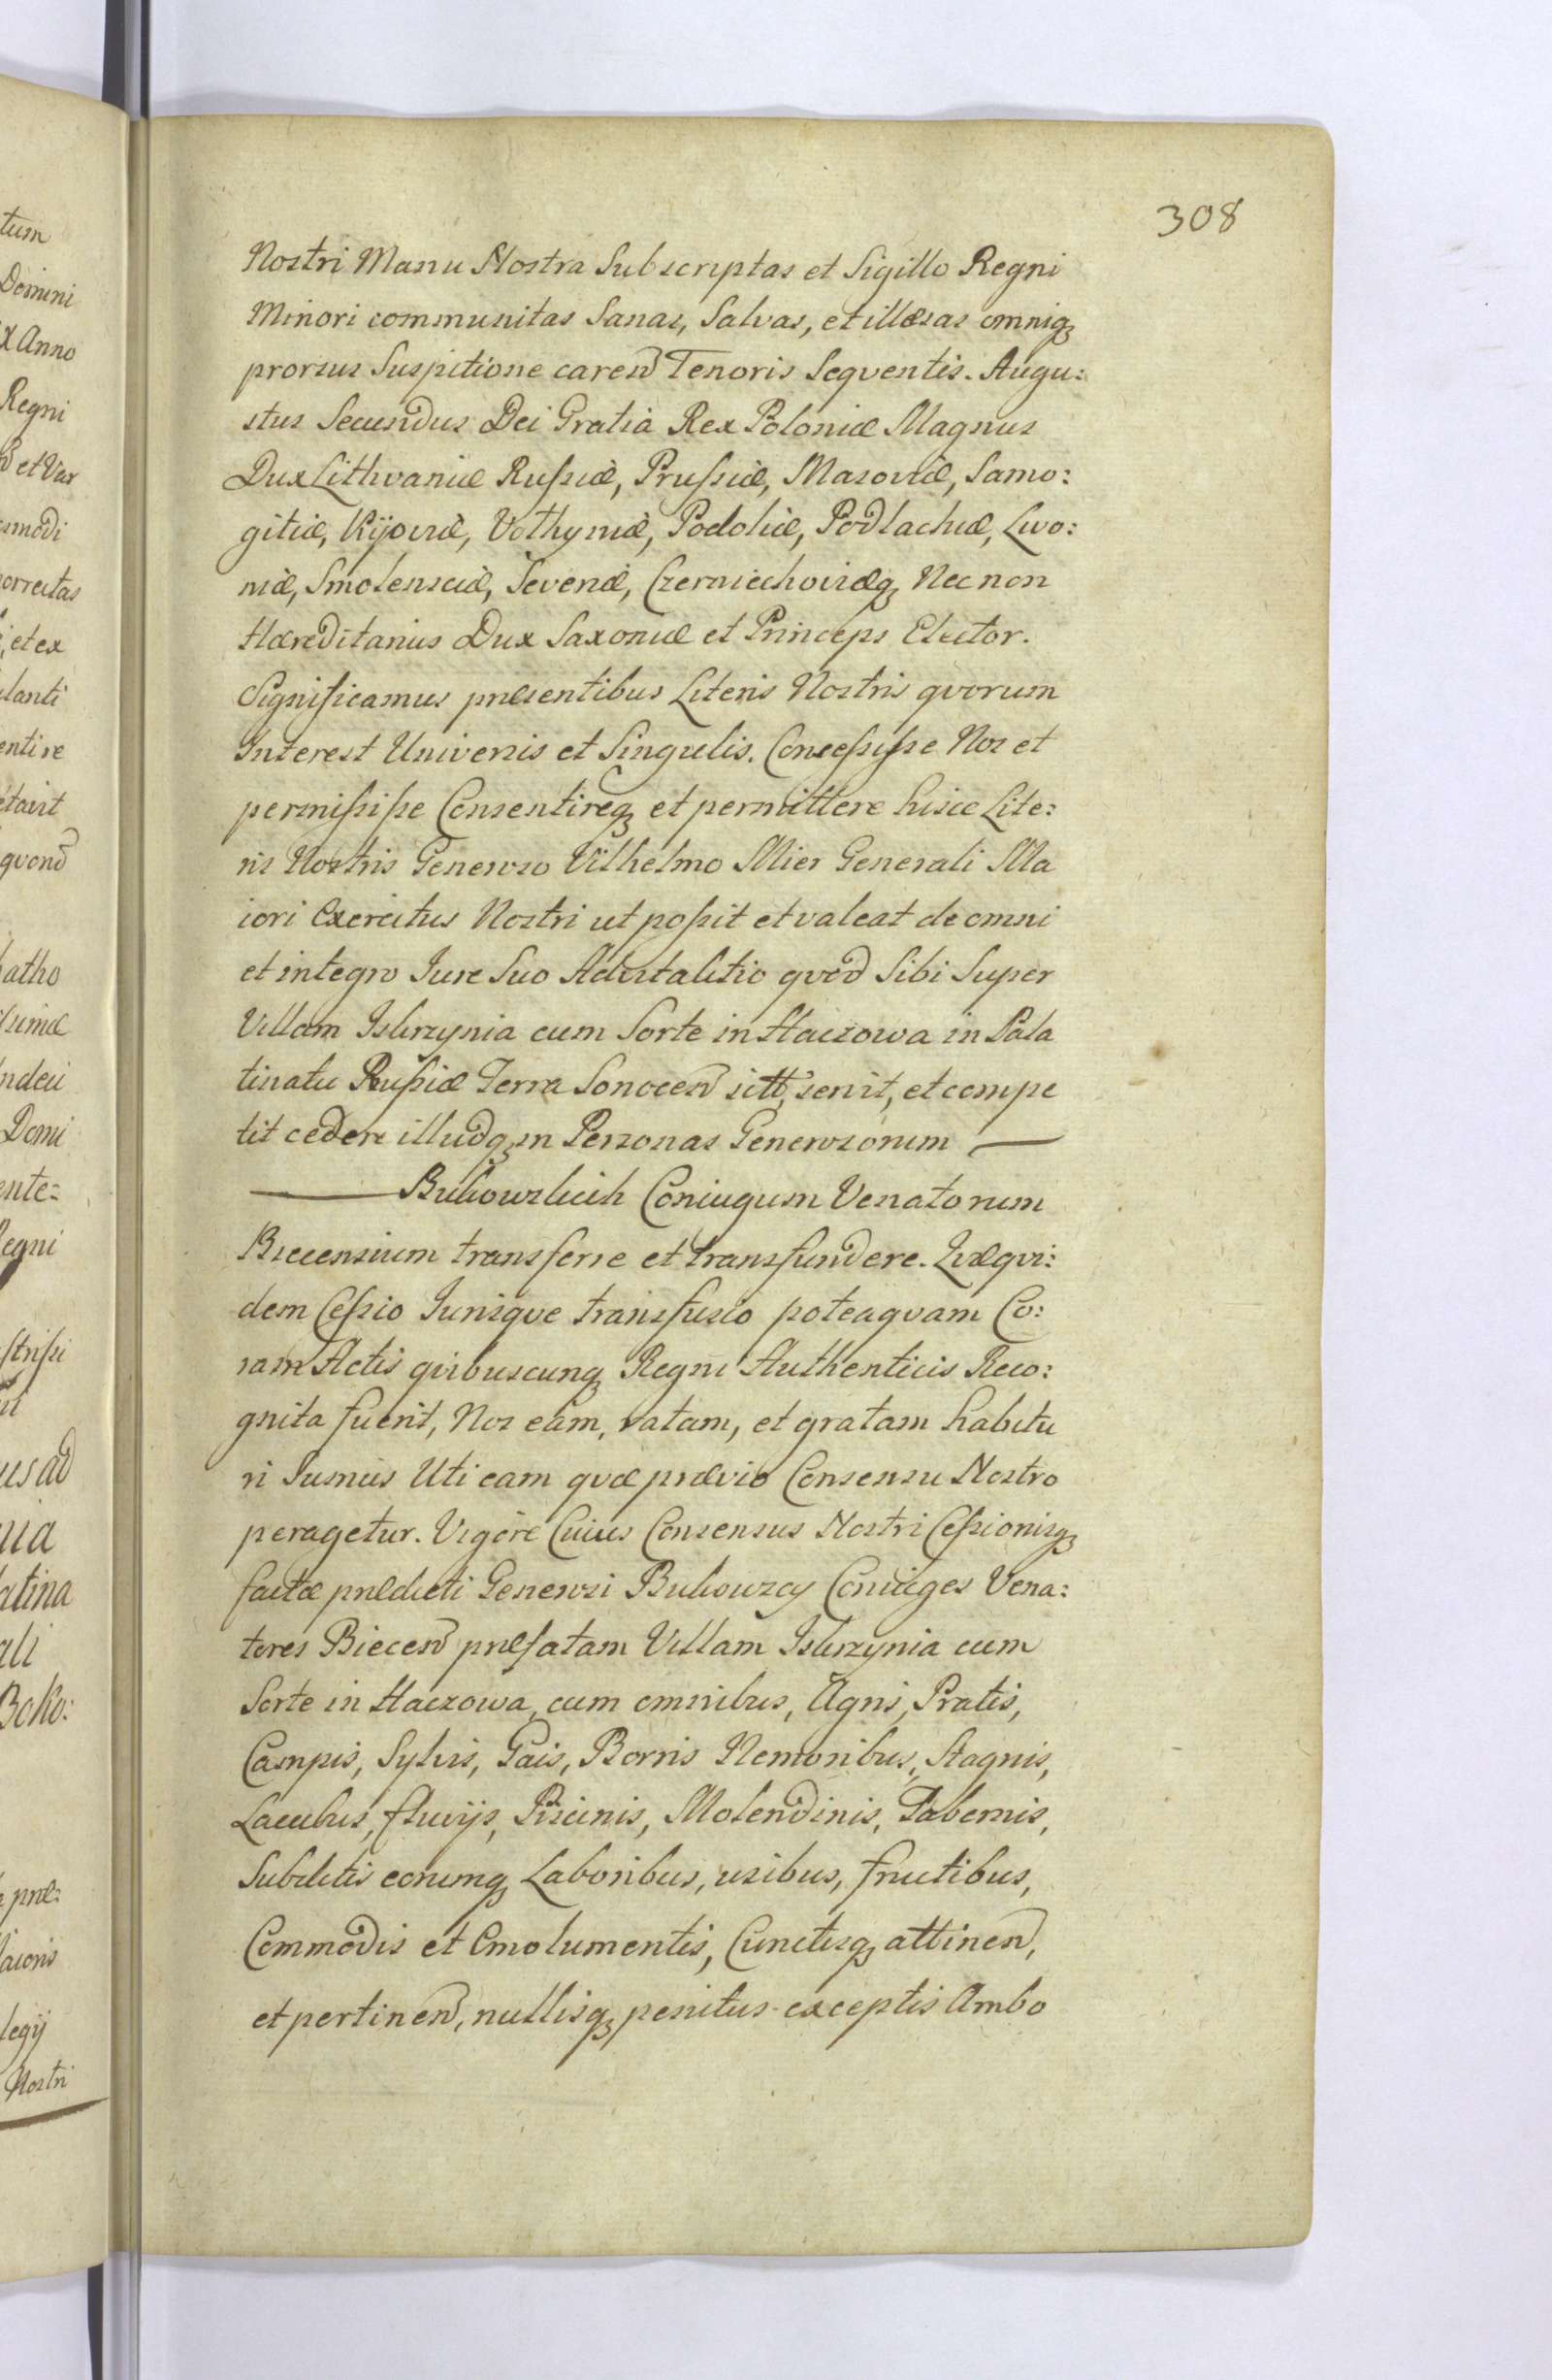 308
Nostri Manu Nostra Subscriptas et Sigillo Regni
Minori communitas Sanas, Salvas, et illæsas omniq;
prorsus Suspitione caren̄ Tenoris Seqventis. Augu:
stus Secundus Dei Gratia Rex Poloniæ Magnus
Dux Lithvaniæ Russiæ, Prussiæ, Masoviæ, Samo:
gitiæ, Kijoviæ, Volhyniæ, Podoliæ, Podlachiæ, Livo:
niæ, Smolensciæ, Severiæ, Czerniechoviæq; Nec non
Hæreditarius Dux Saxoniæ et Princeps Elector.
Significamus præsentibus Literis Nostris qvorum
Interest Universis et Singulis. Concessisse Nos et
permisisse Consentireq; et permittere hisce Lite:
ris Nostris Generoso Vilhelmo Mier Generali Ma
iori Exercitus Nostri ut possit et valeat de omni
et integro Iure Suo Advitalitio qvod Sibi Super
Villam Iskrzynia cum Sorte in Haczowa in Pala
tinatu Russiæ Terra Sonocen̄ sitt, servit, et compe
tit cedere illudq; in Personas Generosorum —
— Bukowskich Coniugum Venatorum
Biecensium transferre et transfundere. Qvæqvi:
dem Cessio Iurisqve transfusio poteaqvam Co:
ram Actis qvibuscunq; Regni Authenticis Reco:
gnita fuerit, Nos eam, ratam, et gratam habitu
ri Sumus Uti eam qvæ prævio Consensu Nostro
peragetur. Vigore Cuius Consensus Nostri Cessionisq;
factæ prædicti Generosi Bukowscy Coniuges Vena:
tores Biecen̄ præfatam Villam Iskrzynia cum
Sorte in Haczowa, cum omnibus, Agris, Pratis,
Campis, Sylvis, Gais, Borris Nemoribus, Stagnis,
Lacubus, fluvijs, Piscinis, Molendinis, Tabernis,
Subditis eorumq; Laboribus, usibus, fructibus,
Commodis et Emolumentis, Cunctisq; attinen̄,
et pertinen̄, nullisq; penitus exceptis Ambo